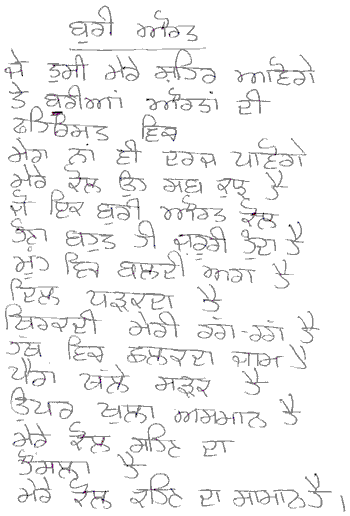 ਬੁਰੀ ਔਰਤ
ਜੇ ਤੁਸੀ ਮੇਰੇ ਸ਼ਹਿਰ ਆਵੋਗੇ
ਤੇ ਬੁਰੀਆਂ ਔਰਤਾਂ ਦੀ
ਫਹਿਰਿਸਤ ਵਿਚ
ਮੇਰਾ ਨਾਂ ਵੀ ਦਰਜ ਪਾਵੋਗੇ
ਮੇਰੇ ਕੋਲ ਉਹ ਸਭ ਕੁਝ ਹੈ
ਜੋ ਇਕ ਬੁਰੀ ਔਰਤ ਕੋਲ
ਹੋਣਾ ਬਹੁਤ ਹੀ ਜ਼ਰੂਰੀ ਹੁੰਦਾ ਹੈ
ਮੂੰਹ ਵਿਚ ਬਲਦੀ ਅਗ ਹੈ
ਦਿਲ ਧੜਕਦਾ ਹੈ
ਥਿਰਕਦੀ ਮੇਰੀ ਰਗ-ਰਗ ਹੈ
ਹੱਥ ਵਿਚ ਛਲਕਦਾ ਜਾਮ ਹੈ
ਪੈਰਾਂ ਥੱਲੇ ਸੜਕ ਹੈ
ਉਪਰ ਖੁਲਾ ਅਸਮਾਨ ਹੈ
ਮੇਰੇ ਕੋਲ ਸਹਿਣ ਦਾ
ਹੌਸਲਾ ਹੈ
ਮੇਰੇ ਕੋਲ ਕਹਿਣ ਦਾ ਸਾਮਾਨ ਹੈ।